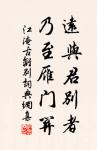 遠與君別者
乃至雁门關
江淹古離別詞典網集